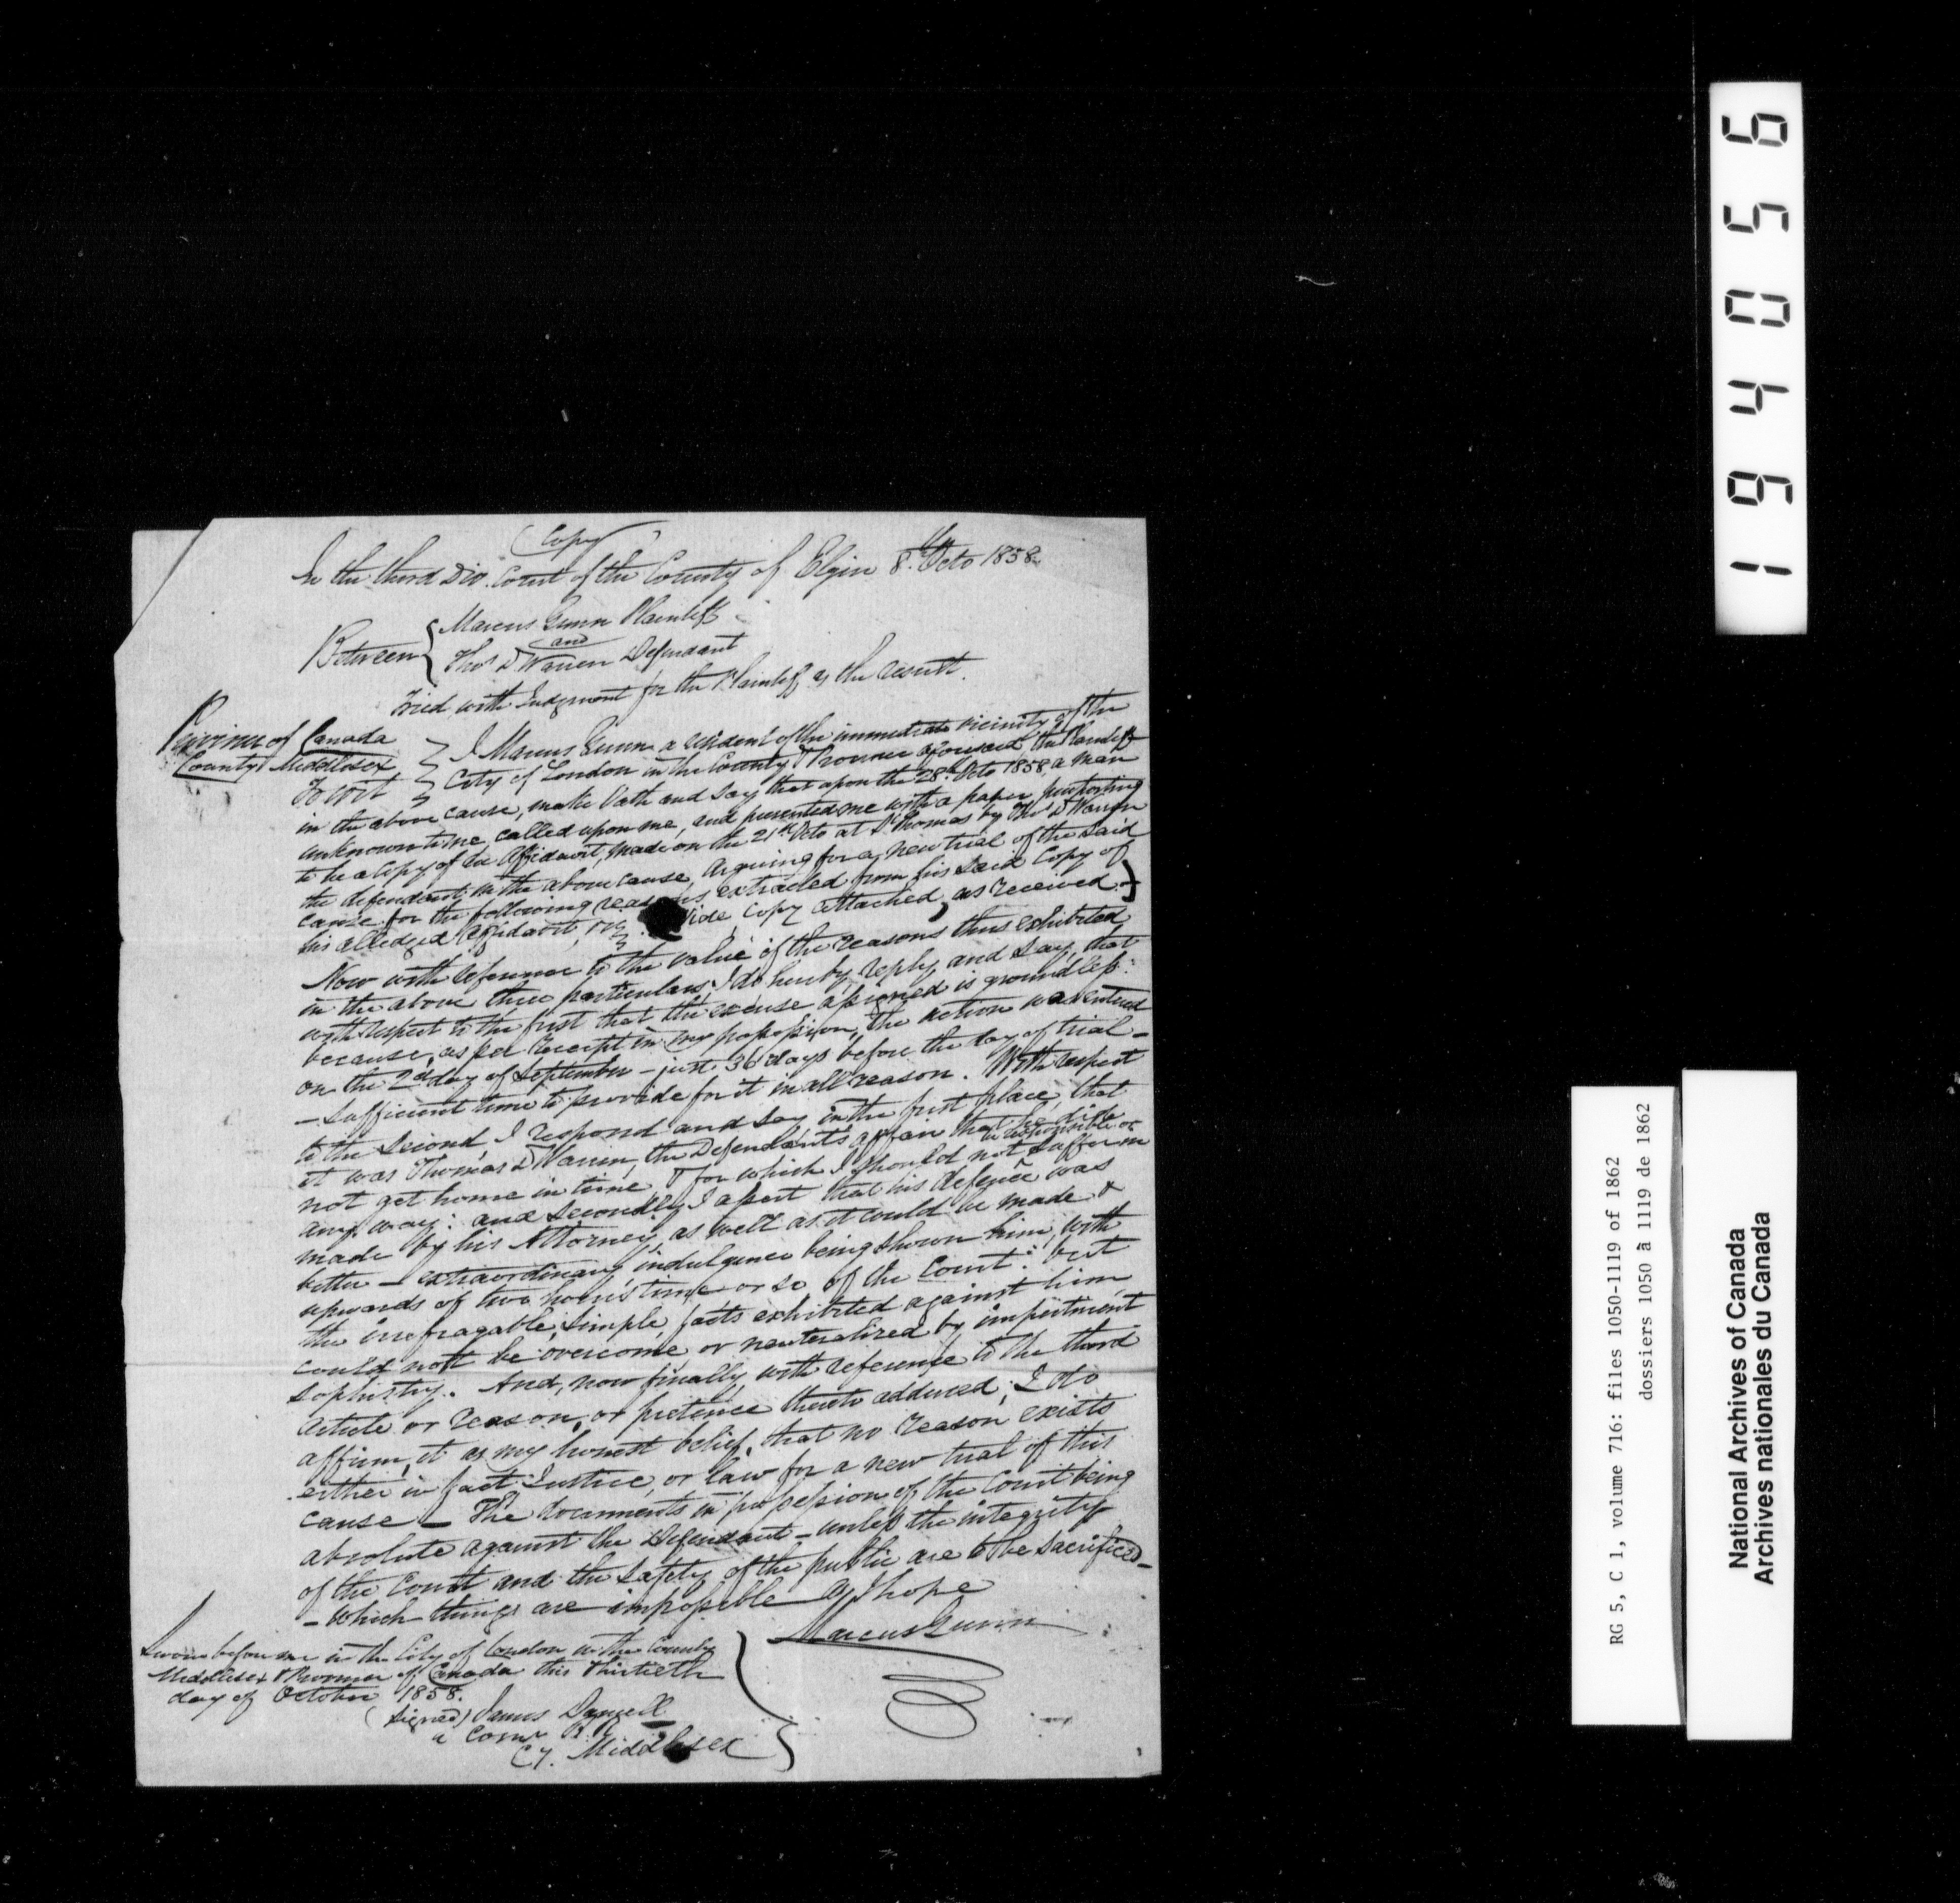 Copy
In the third Div. Court of the County of Elgin 8th Octo 1858
Between { Marcus Gunn Plaintiff
and
Thos D Warren Defendant
Tried with Judgment for the Plaintiff as the result.
Province of Canada
County Middlesex
To wit
I Marcus Gunn a resident of the immediate vicinity of the
City of London in the County & Province aforesaid, the Plaintiff
in the above cause, make Oath and say that upon the 28th Octo 1858, a man
unknown to me, called upon me, and presented me with a paper purporting
to be a Copy of an Affidavit, made on the 21st Octo at St Thomas by Thos D Warren
the defendant in the above cause, Arguing for a new trial of the said
cause for the following reasons, extracted from his said Copy of
his alledged Affidavit, Vide Copy attached, as received. }
Now with reference to the value of the reasons thus exhibited
in the above three particulars, I do hereby reply and say, that
with respect to the first that the excuse assigned is groundless:
because, as per receipt in my possession, the action was entered
on the 2nd day of September – just 36 days before the day of trial –
– sufficient time to provide for it in all reason. With respect
to the second, I respond and say in the first place, that
it was Thomas D Warren, the Defendant's affair that he did
not get home in time & for which I should not be responsible or suffer in
any way: and secondly I assert that his defence was
made by his Attorney, as well as it could be made &
better – extraordinary indulgence being shown him, with
upwards of two hours time or so of the Court: but
the irrefragable, simple, facts exhibited against him
could not be overcome or neutralized by impertinent
sophistry. And, now finally, with reference to the third
article or reason, or pretence thereto adduced; I do
affirm, it as my honest belief, that no reason exists
either in fact, Justice, or law for a new trial of this
cause – The documents in possession of the Court being
absolute against the Defendant – unless the integrity
of the Court and the safety of the public are to be sacrificed –
– which things are impossible as I hope
Marcus Gunn
Sworn before me in the City of London in the County
Middlesex & Province of Canada this Thirtieth
day of October 1858.
(Signed) James Daniell
a Comr B.R.
Cy. Middlesex
194056
RG 5, C 1, volume 716: files 1050-1119 of 1862
dossiers 1050 à 1119 de 1862
National Archives of Canada
Archives nationales du Canada